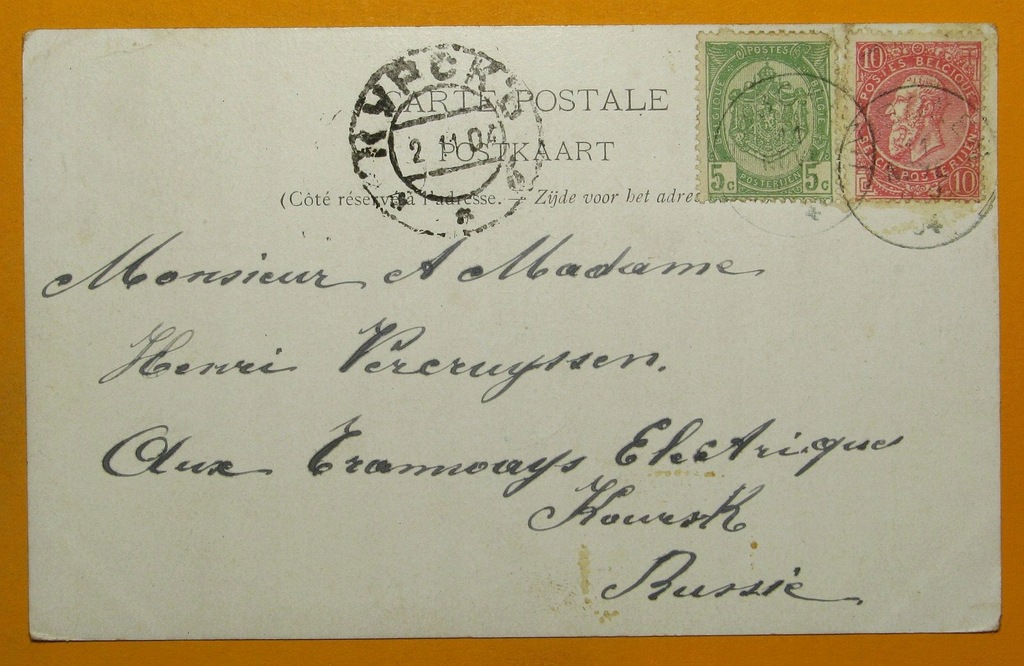 CARTE POSTALE
POSTKAART
(Côté réservé à l'adresse. — Zijde voor het adres
КУРСКЪ
2 11 04
POSTES
BELGIQUE BELGIE
5c 5c
POSTERIJEN
10
POSTES BELGIQUE
BELGIE POSTERIJEN
10
04
Monsieur & Madame
Henri Vercruyssen.
Aux Tramways Electriques
Koursk
Russie